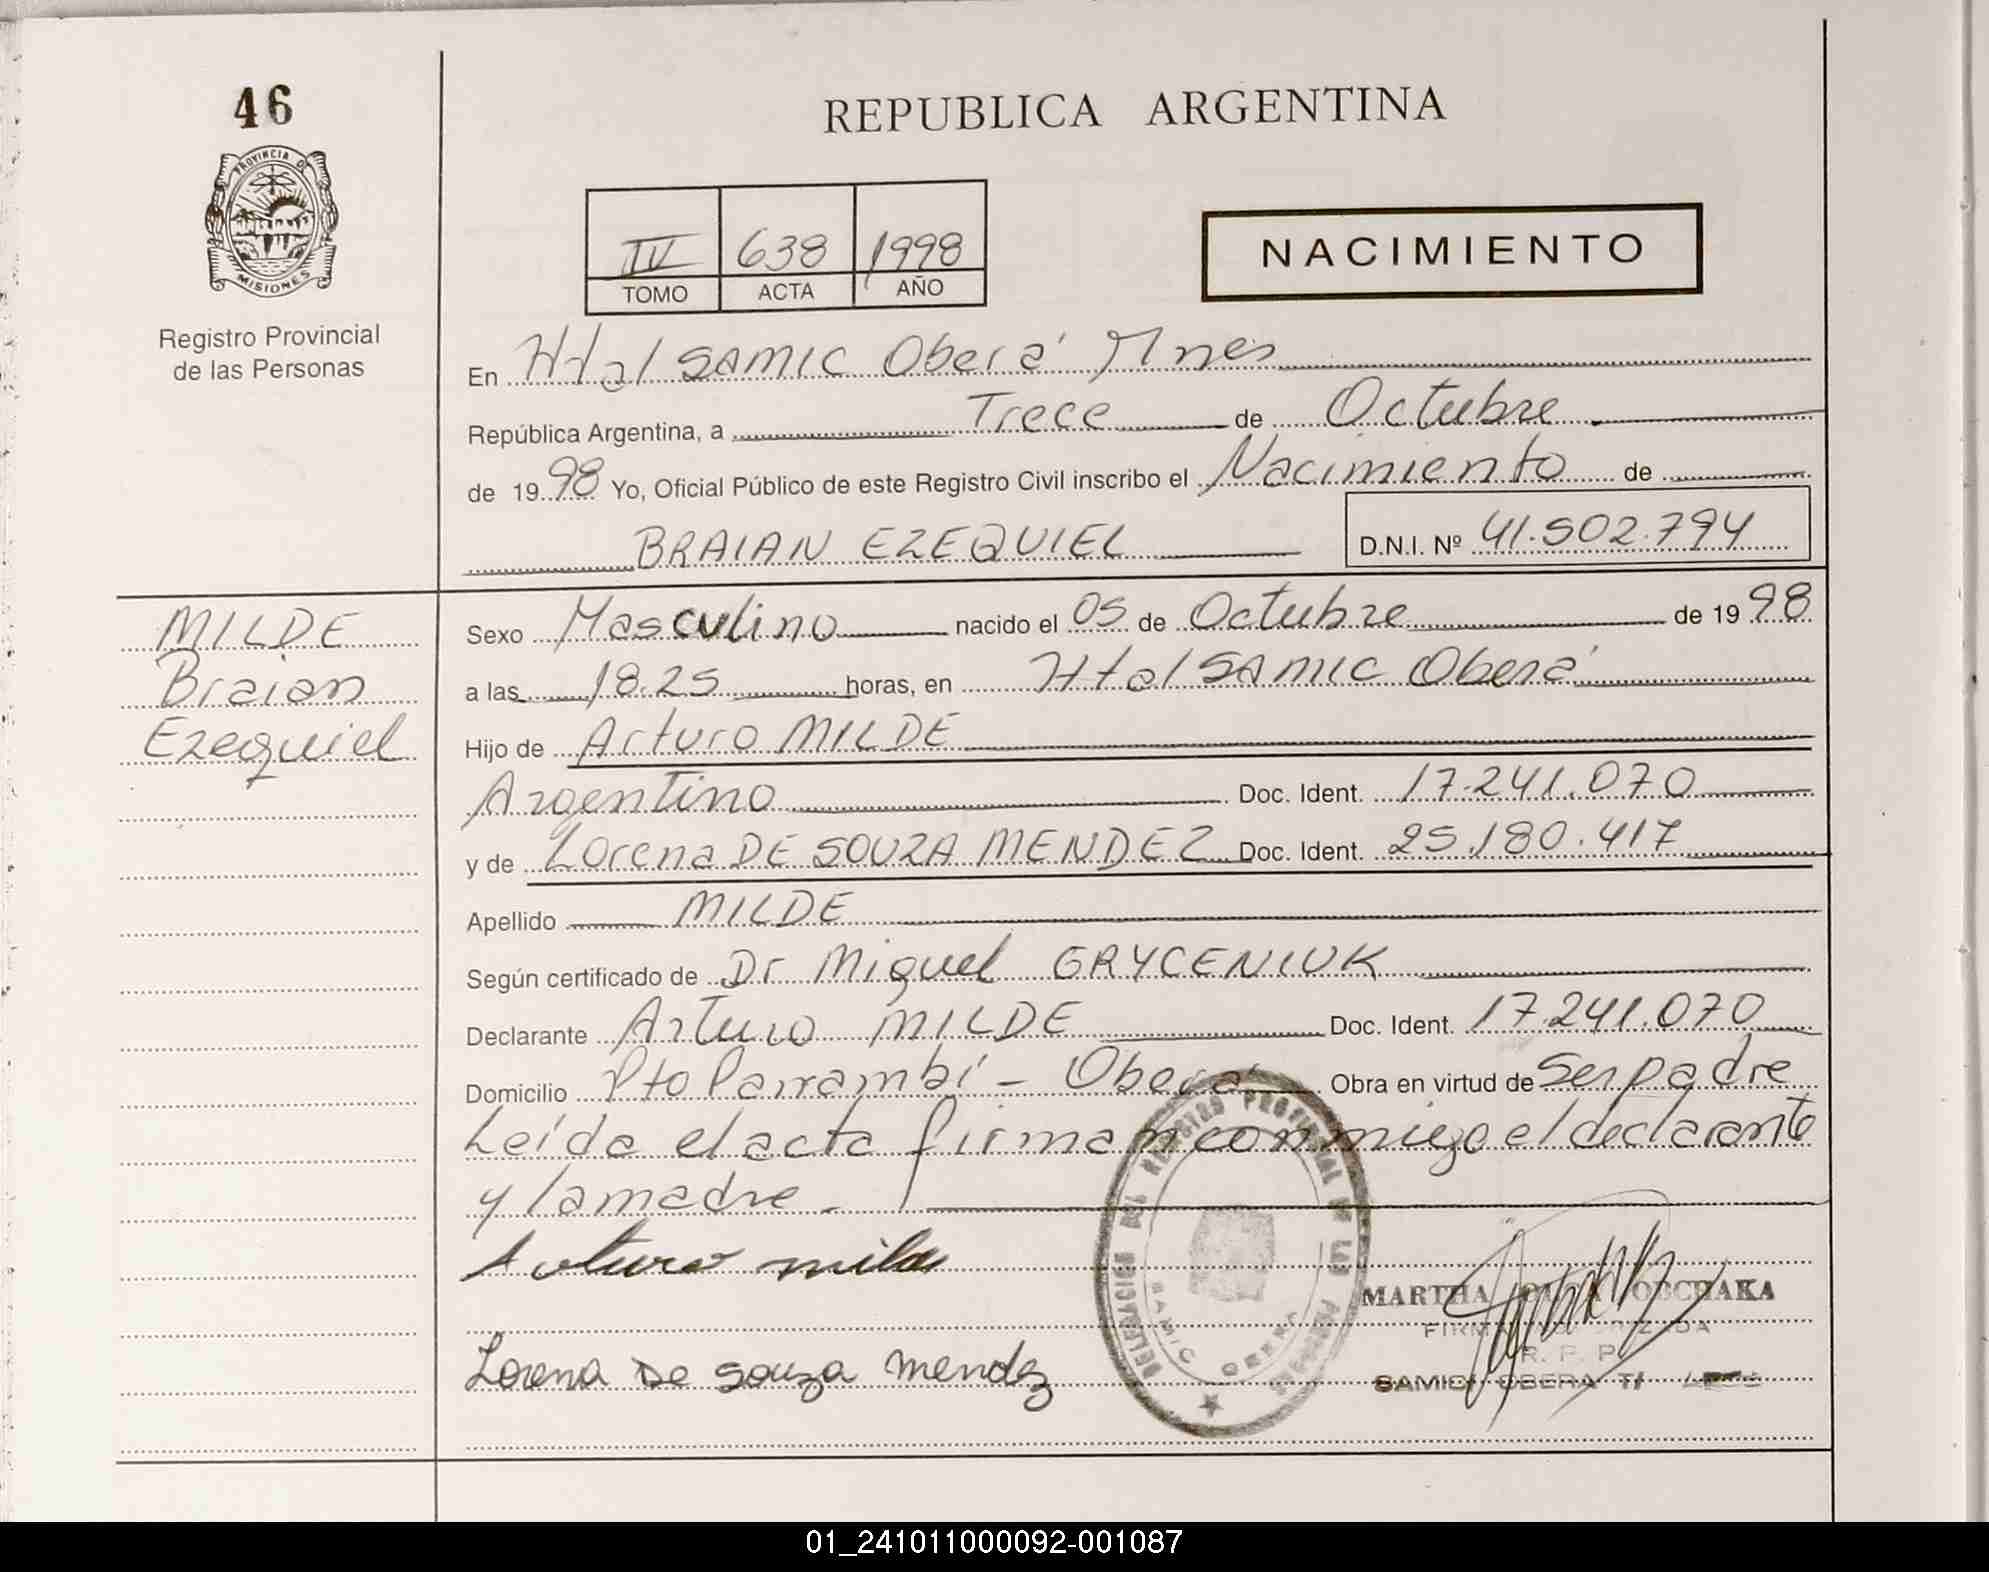 46
REPUBLICA ARGENTINA
PROVINCIA DE
MISIONES
Registro Provincial
de las Personas
IV 638 1998
TOMO ACTA AÑO
NACIMIENTO
En Htal SAMIC Oberá Mnes
República Argentina, a Trece de Octubre
de 1998 Yo, Oficial Público de este Registro Civil inscribo el Nacimiento de
BRAIAN EZEQUIEL D.N.I. Nº 41.502.794
MILDE
Braian
Ezequiel
Sexo Masculino nacido el 05 de Octubre de 1998
a las 18.25 horas, en Htal SAMIC Oberá
Hijo de Arturo MILDE
Argentino Doc. Ident. 17.241.070
y de Lorena DE SOUZA MENDEZ Doc. Ident. 25.180.417
Apellido MILDE
Según certificado de Dr Miguel GRYCENIUK
Declarante Arturo MILDE Doc. Ident. 17.241.070
Domicilio Pto Panambí - Oberá Obra en virtud de Ser padre
Leída el acta firman conmigo el declarante
y la madre.
Arturo milde
Lorena De Souza Mendez
DELEGACION DEL REGISTRO PROVINCIAL DE LAS PERSONAS
SAMIC OBERA
MARTHA OLGA OBCHAKA
FIRMA AUTORIZADA
R. P. P.
SAMIC OBERA
01_241011000092-001087